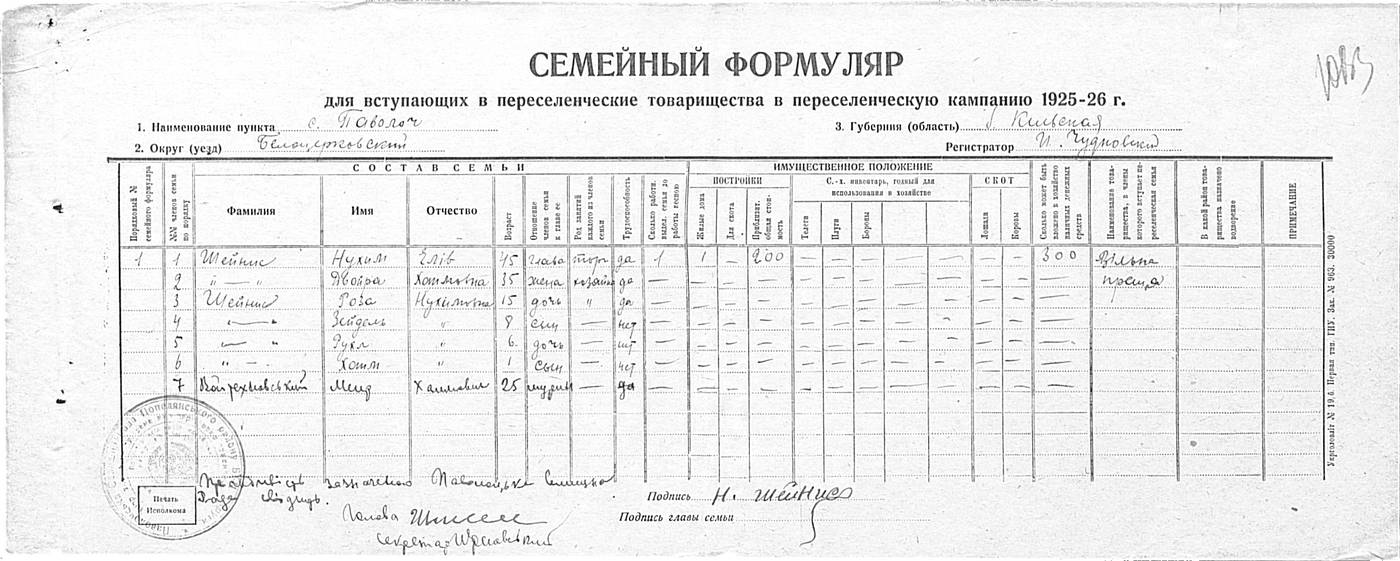 СЕМЕЙНЫЙ ФОРМУЛЯР
для вступающих в переселенческие товарищества в переселенческую кампанию 1925-26 г.
1. Наименование пункта с. Паволоч
3. Губерния (область) Киевская
2. Округ (уезд) Белоцерковский
Регистратор И. Чудновский
СОСТАВ СЕМЬИ
ИМУЩЕСТВЕННОЕ ПОЛОЖЕНИЕ
ПОСТРОЙКИ
С.-х. инвентарь, годный для использования в хозяйстве
СКОТ
Порядковый № семейного формуляра
№№ членов семьи по порядку
Фамилия
Имя
Отчество
Возраст
Отношение членов семьи к главе ее
Род занятий каждого из членов семьи
Трудоспособность
Сколько работн. выдел. семья до работы весною
Жилые дома
Для скота
Приблизит. общая стоимость
Телеги
Плуги
Бороны
Лошади
Коровы
Сколько может быть вложено в хозяйство наличных денежных средств
Наименование товарищества, в члены которого вступает переселенческая семья
В какой район товарищества назначено водворение
ПРИМЕЧАНИЕ
1 1 Шейнис Нухим Елів 45 глава торг да 1 1 — 200 — — — — — 300 Вільна
2 "—" Двойра Хаимовна 35 жена хозяйка да — — — — — — — — — — праця
3 Шейнис Роза Нухимовна 15 дочь " да — — — — — — — — — —
4 "—" Зейдель " 8 сын — нет — — — — — — — — — —
5 "—" Рухл " 6 дочь — нет — — — — — — — — — —
6 " — Хаим " 1 сын — нет — — — — — — — — — —
7 Меир Хаимович 25 шурин — да — — — — — — — — — —
зазначеного Паволоцька
Рада свідчить.
Печать Исполкома
Подпись Н. Шейнис
Голова
Подпись главы семьи
Секретар
Укрголовліт № 19.б. Первая тип. ГИУ. Зак. № 963. 30000